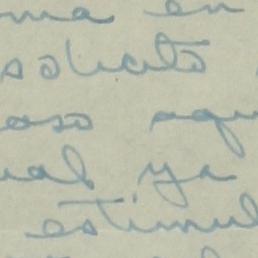 ma en
solicito
caso aqu
ual ya
estimul